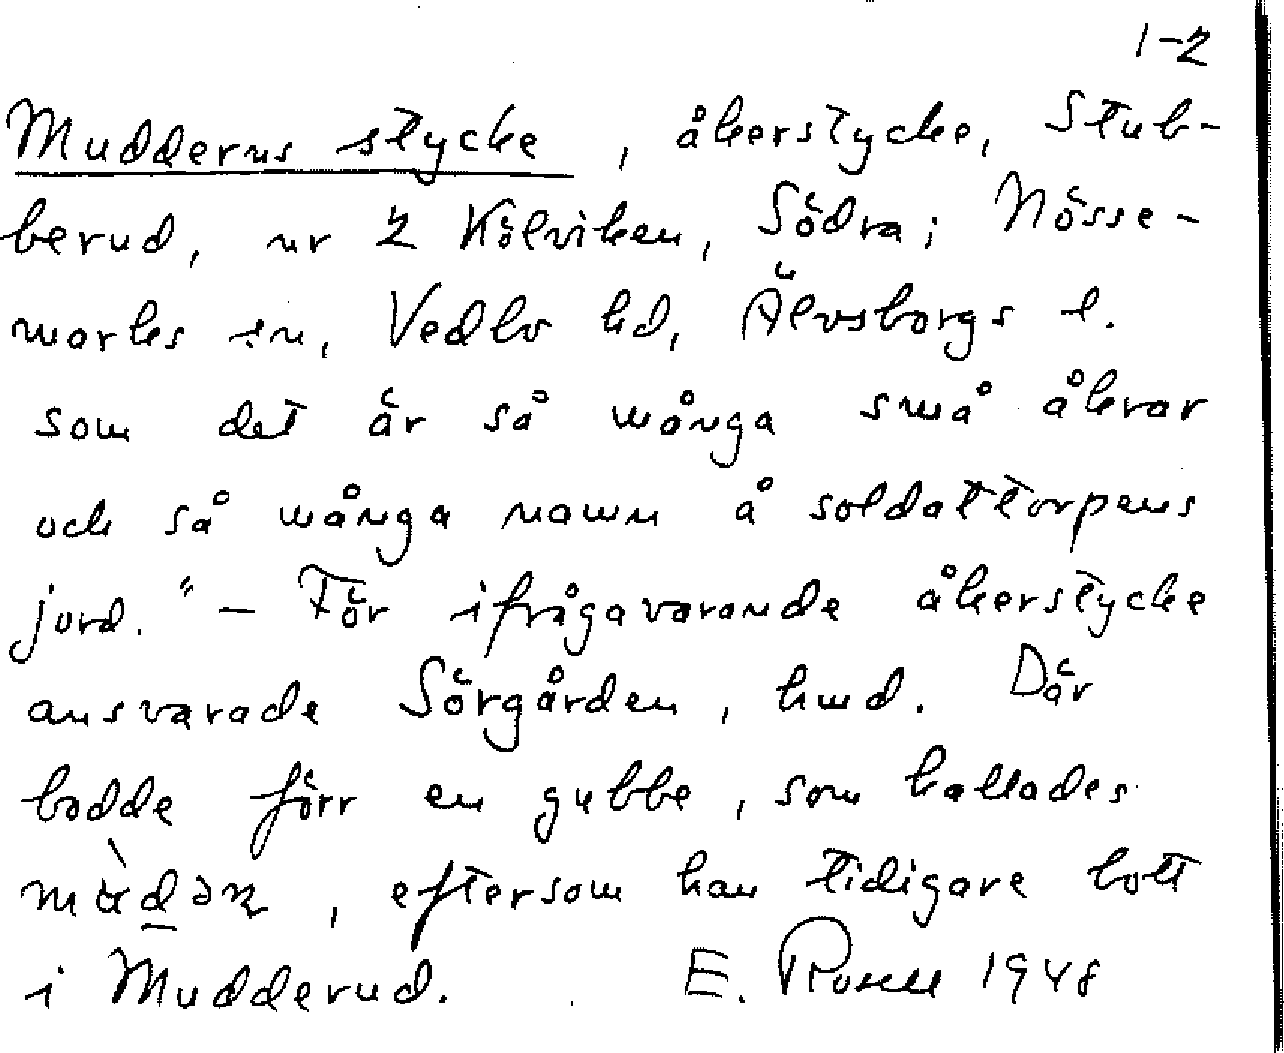 1-2
Mudderns stycke, åkerstycke, Stub-
berud, nr 2 Kölviken, Södra; Nösse-
marks sn, Vedbo hd, Älvsborgs l.
som det är så många små åkrar
och så många namn å soldattorpens
jord." - För ifrågavarande åkerstycke
ansvarade Sörgården, hmd. Där
bodde förr en gubbe, som kallades
, eftersom han tidigare bott
i Mudderud. E. Rosell 1948